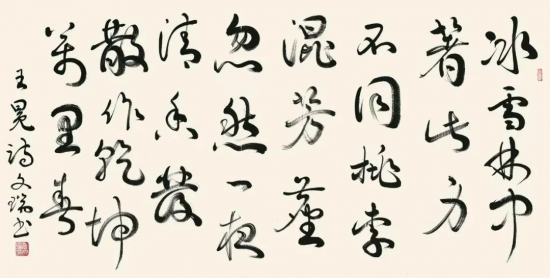 冰雪林中
著此身
不同桃李
混芳塵
忽然一夜
清香發
散作乾坤
萬里春
王冕詩文瑞书